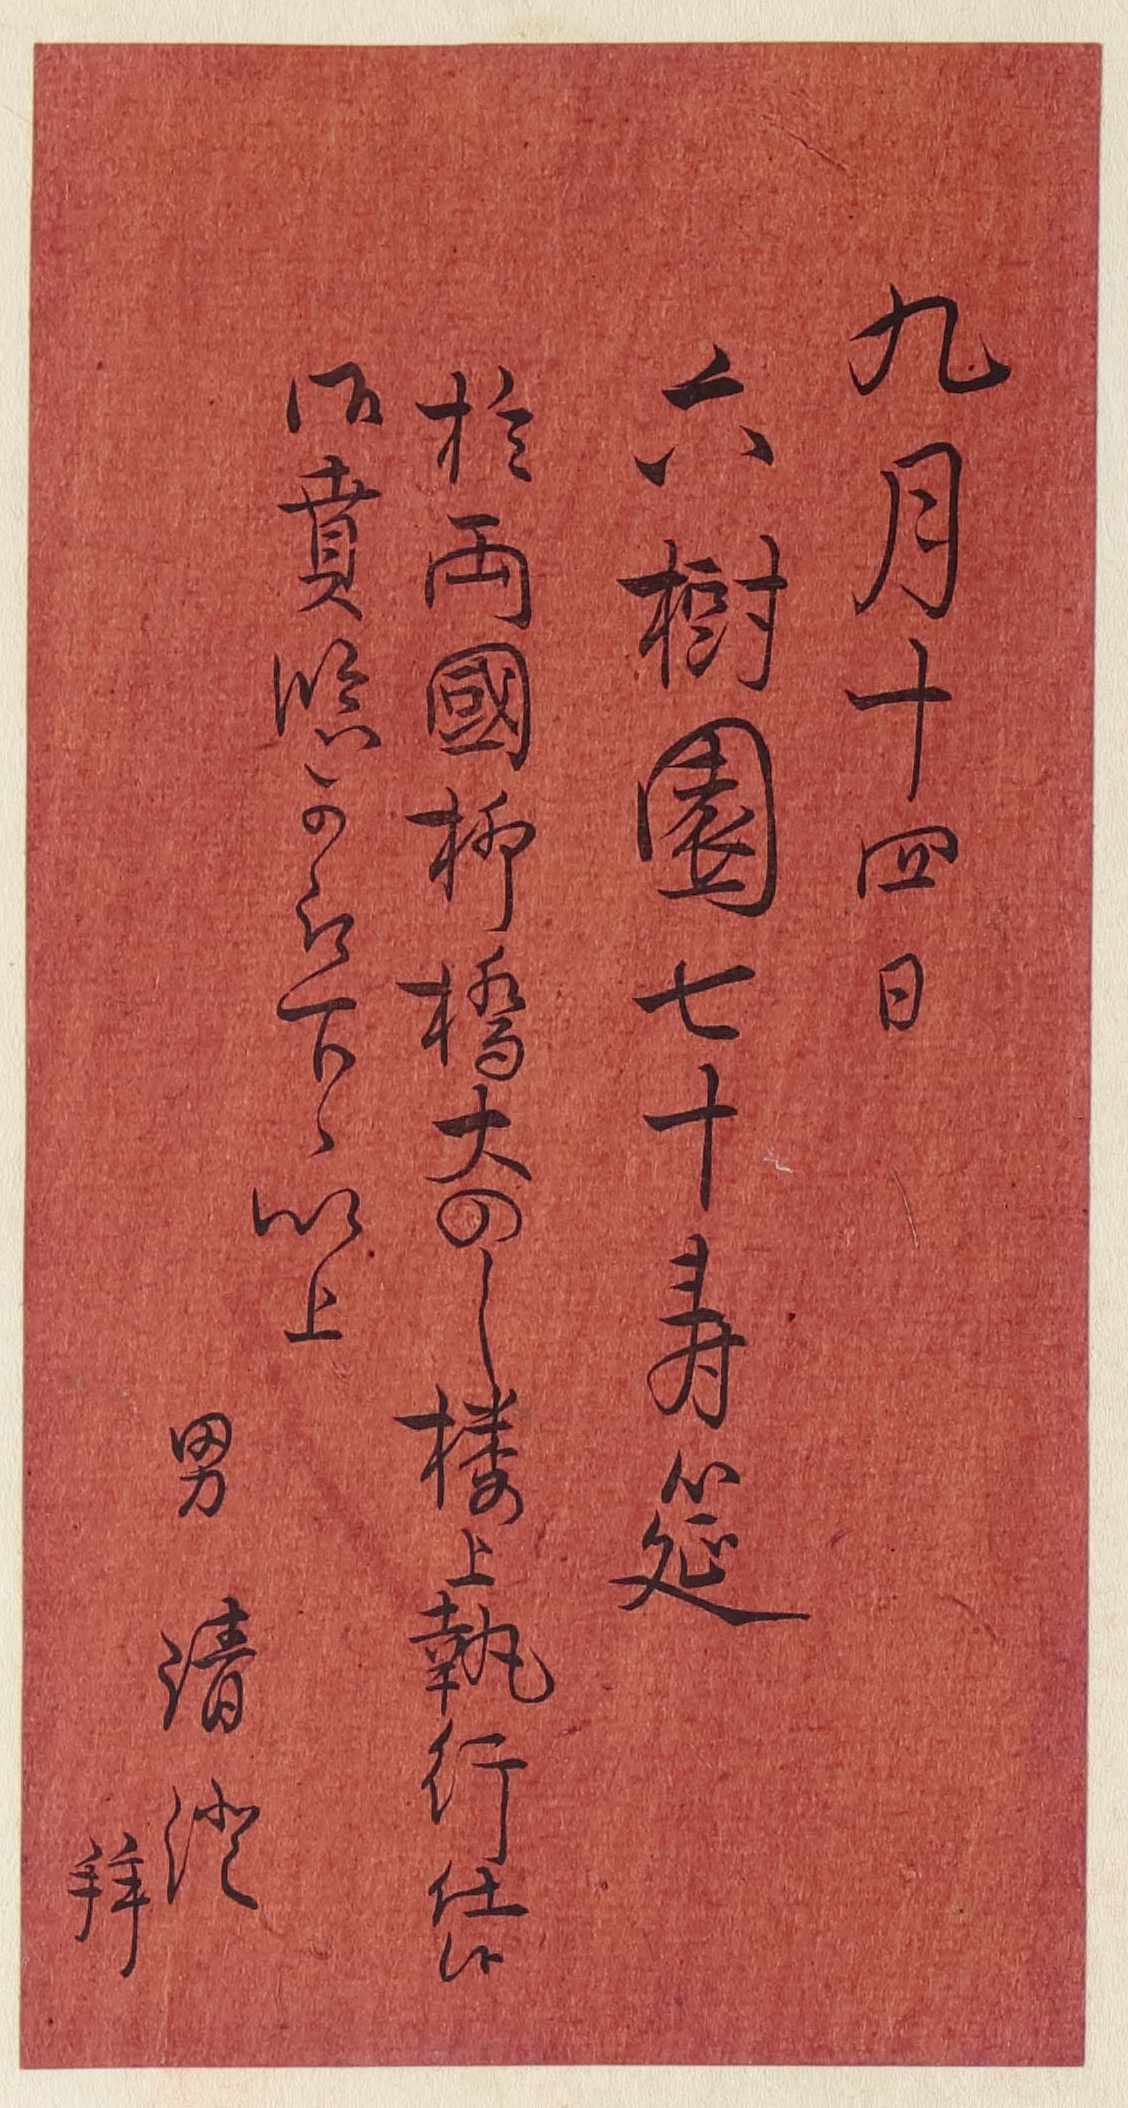 九月十四日
六樹園七十寿筵
於両國柳橋大のし楼上執行仕候
御賁臨可被下候以上
男 清澄
拜